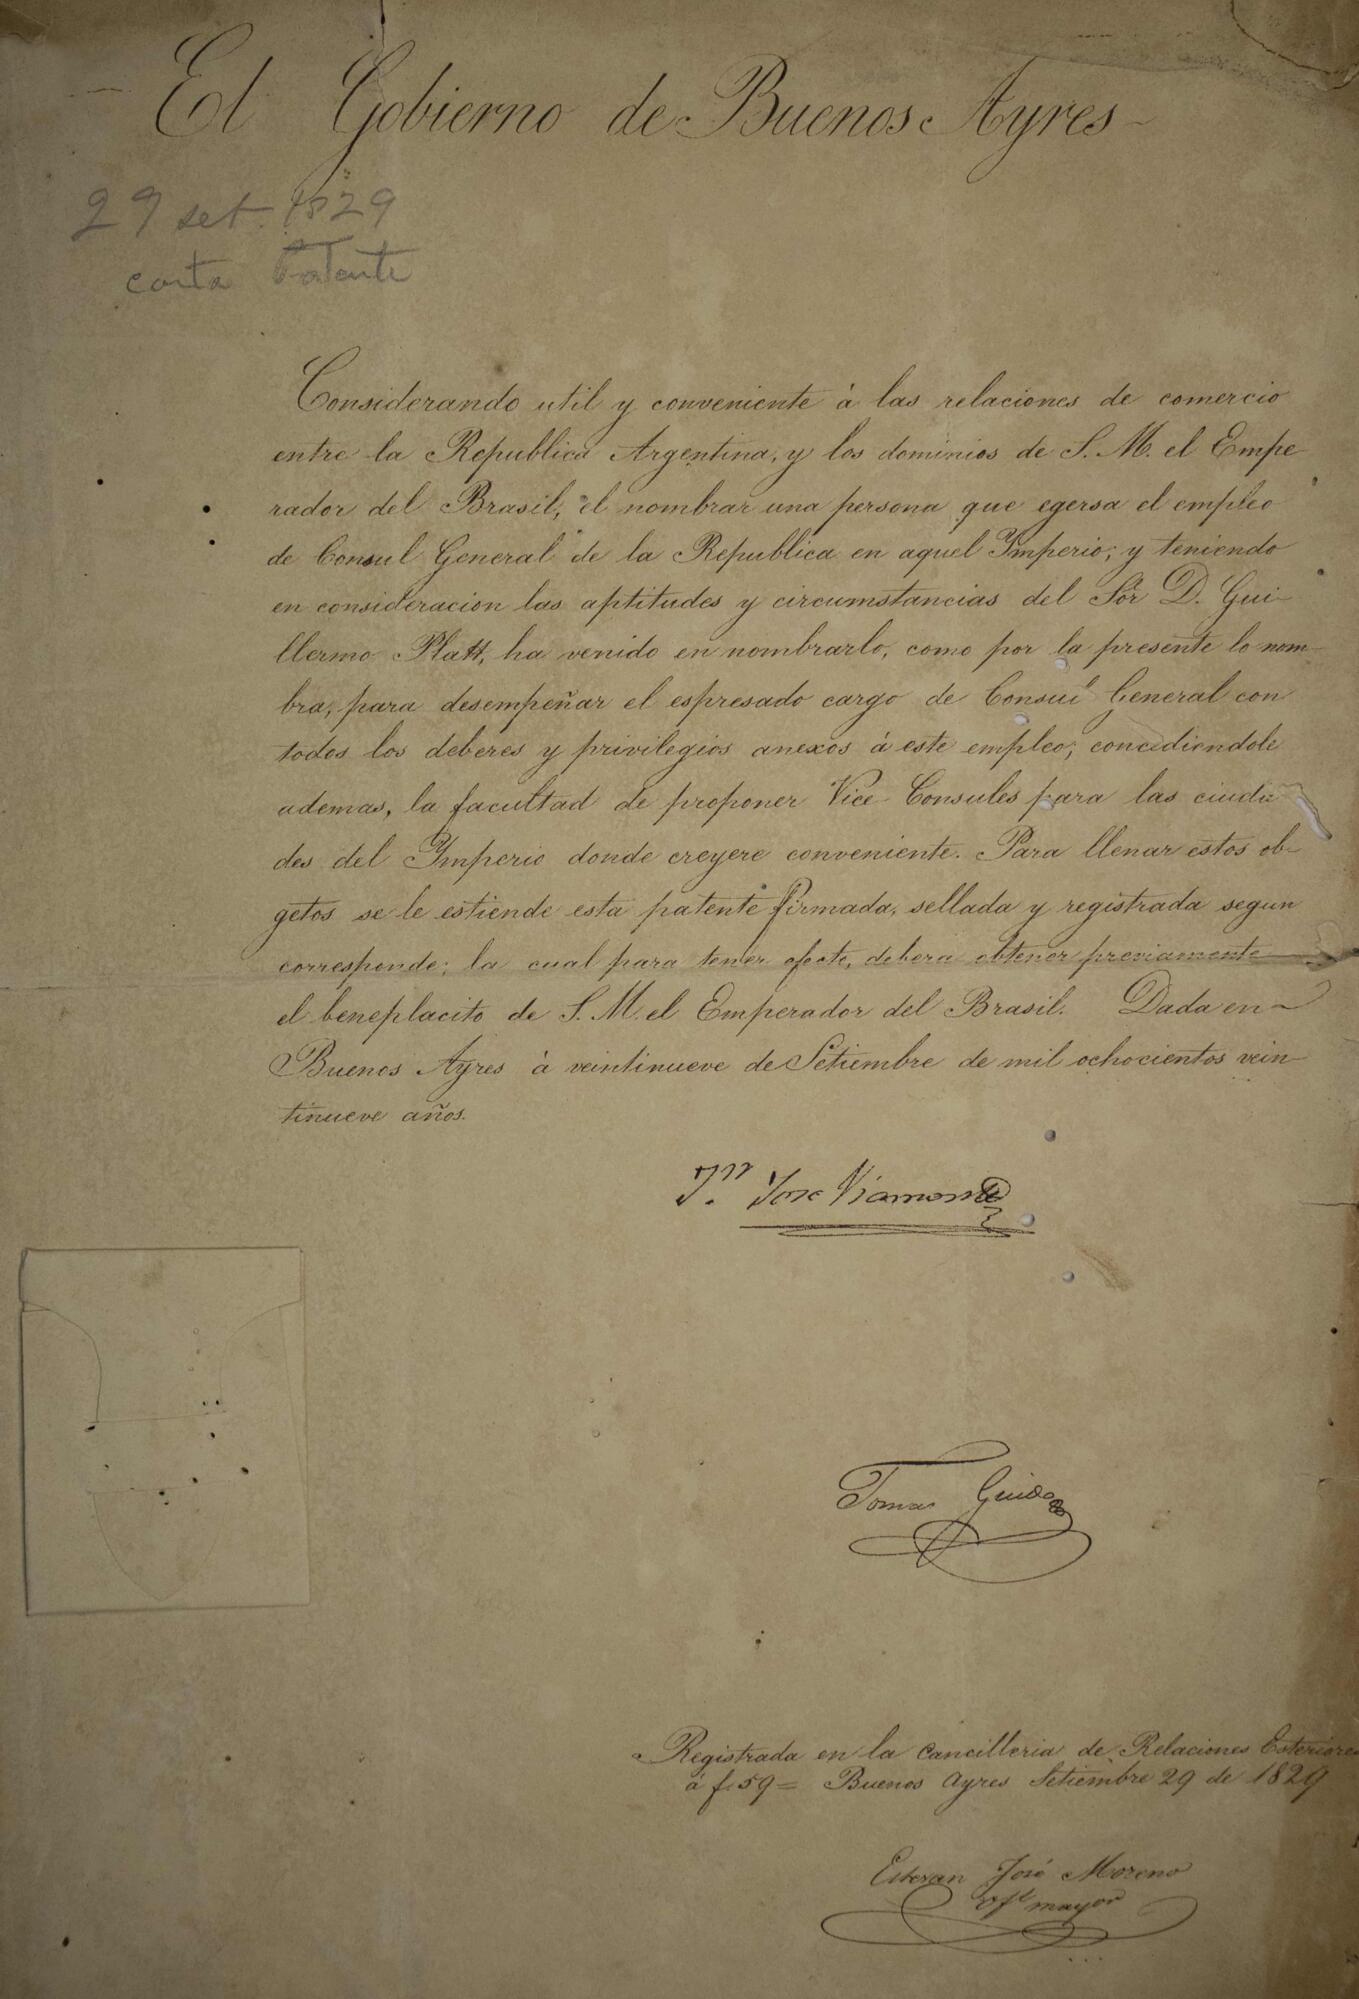 El Gobierno de Buenos Ayres
29 set. 1829
carta Patente
Considerando util y conveniente á las relaciones de comercio
entre la Republica Argentina, y los dominios de S. M. el Empe
rador del Brasil, el nombrar una persona que egersa el empleo
de Consul General de la Republica en aquel Ymperio; y teniendo
en consideracion las aptitudes y circumstancias del Sör D. Gui-
llermo Platt, ha venido en nombrarlo, como por la presente lo nom-
bra, para desempeñar el espresado cargo de Consul General con
todos los deberes y privilegios anexos á este empleo; concediendole
ademas, la facultad de proponer Vice Consules para las ciuda
des del Ymperio donde creyere conveniente. Para llenar estos ob-
getos se le estiende esta patente firmada, sellada y registrada segun
corresponde; la cual para tener efecto, debera obtener previamente
el beneplacito de S. M. el Emperador del Brasil. Dada en
Buenos Ayres á veintinueve de Setiembre de mil ochocientos vein-
tinueve años.
Jn. Jose Viamonte
Tomas Guido
Registrada en la Cancilleria de Relaciones Esteriores
á f. 59 = Buenos Ayres Setiembre 29 de 1829
Estevan José Moreno
Ofl. mayor